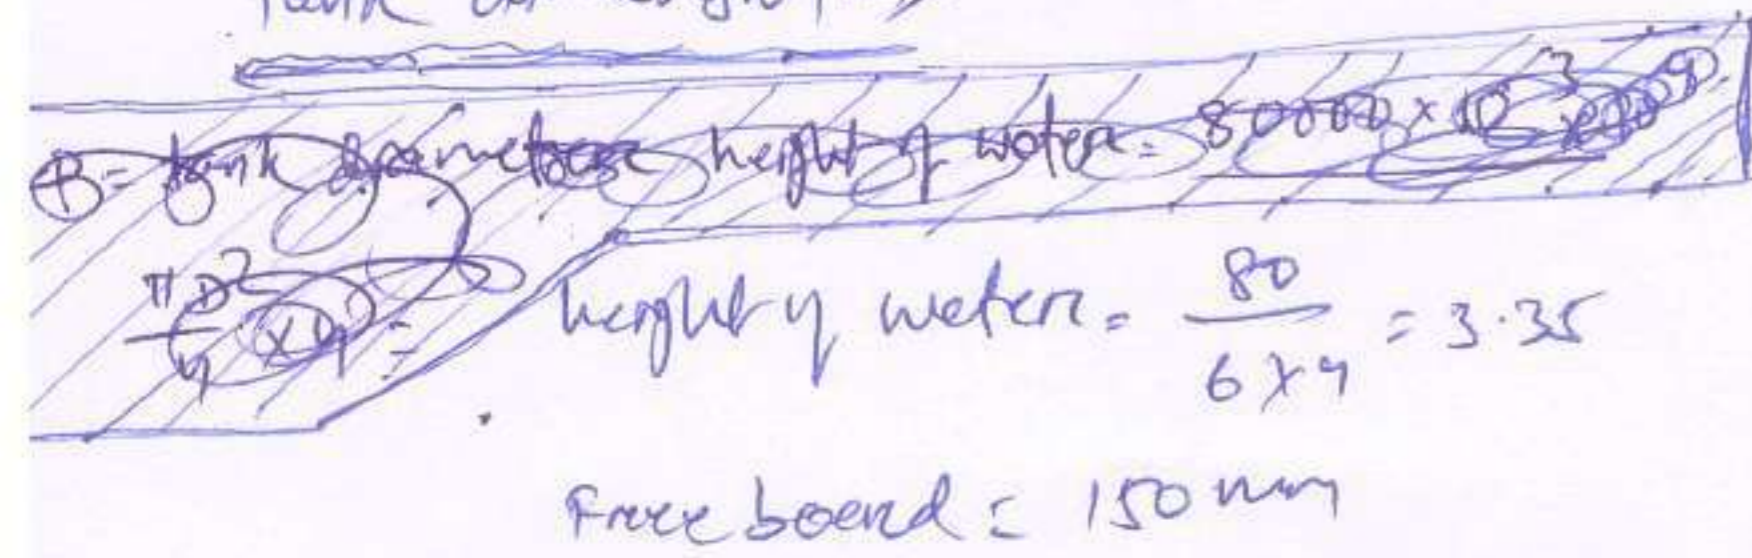 Tank
D = tank diameter height of water = 80000 × 10³
πD²/4 × 4 =
height of water = 80/6×4 = 3.35
Free board = 150 mm